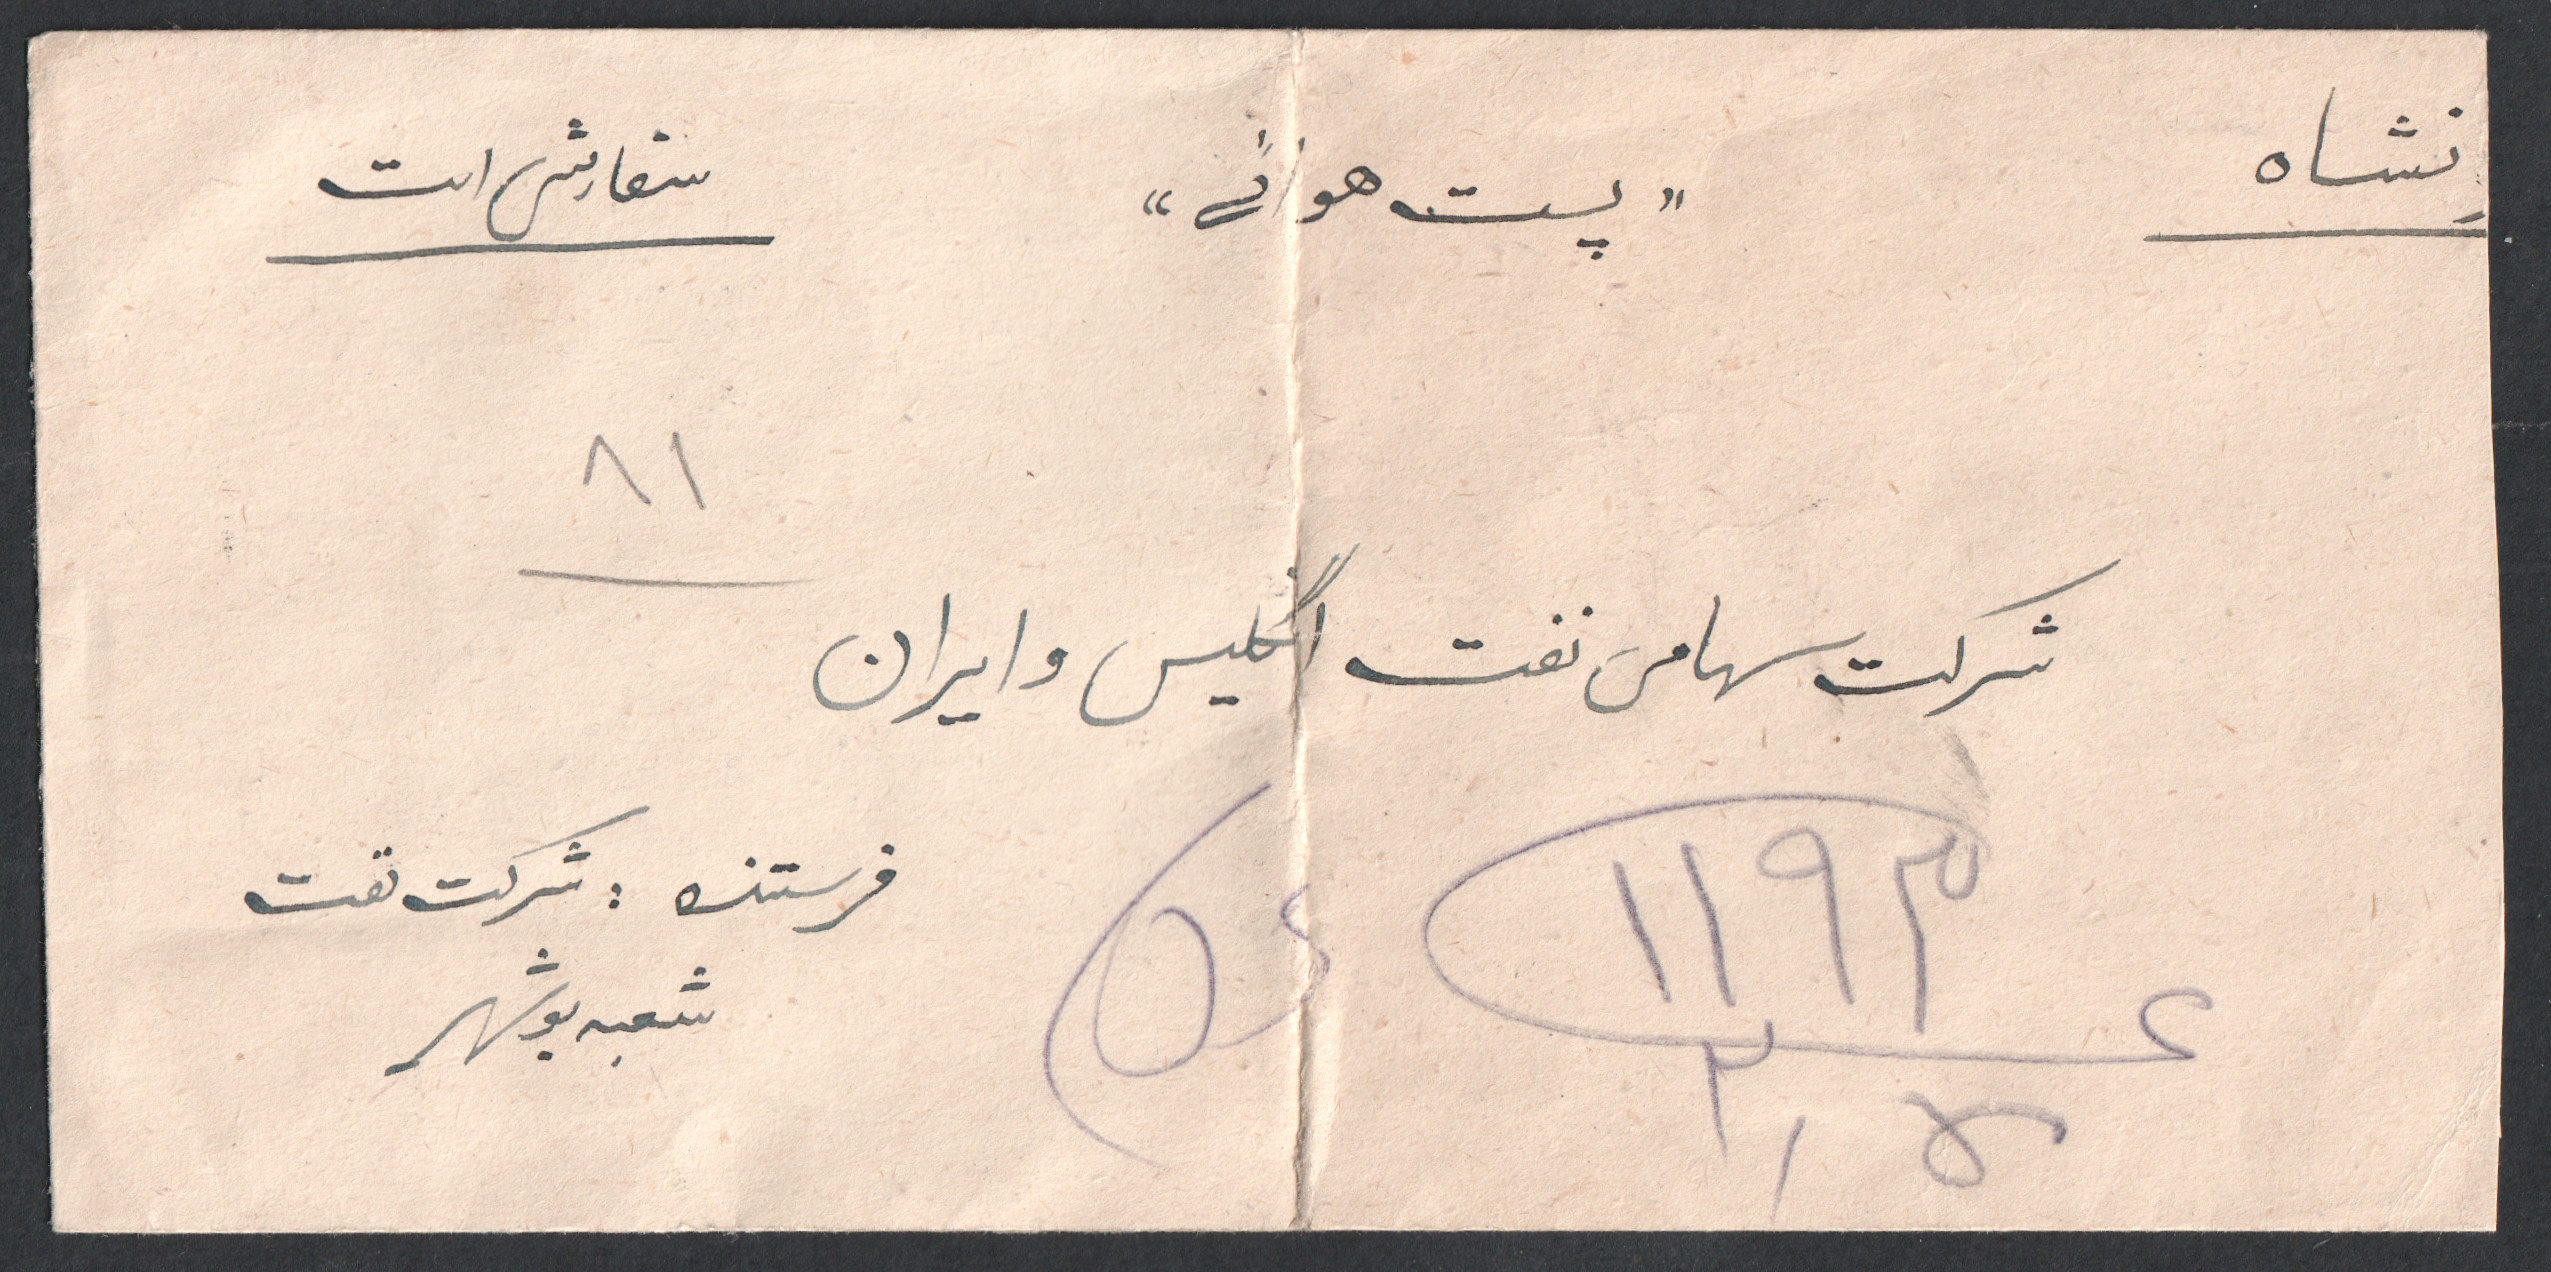 نشاه
"پست هوائی"
سفارشی است
۸۱
شرکت سهامی نفت انگلیس و ایران
فرستنده : شرکت نفت
شعبه بوشهر
۱۱۹۳